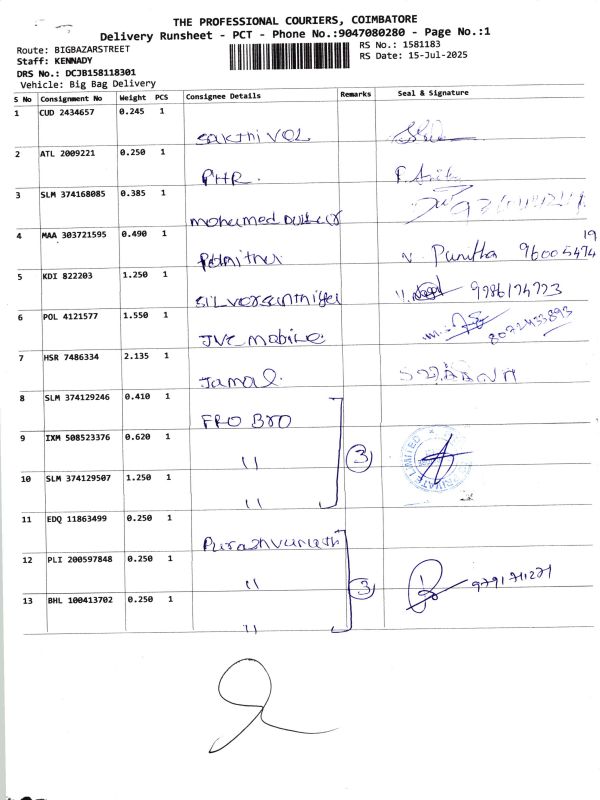 THE PROFESSIONAL COURIERS, COIMBATORE
Delivery Runsheet - PCT - Phone No.:9047080280 - Page No.:1
Route: BIGBAZARSTREET
Staff: KENNADY
DRS No.: DCJB158118301
Vehicle: Big Bag Delivery
RS No.: 1581183
RS Date: 15-Jul-2025
S No Consignment No Weight PCS Consignee Details Remarks Seal & Signature
1 CUD 2434657 0.245 1 Sakthi Vel
2 ATL 2009221 0.250 1 PHR.
3 SLM 374168085 0.385 1 mohamed
4 MAA 303721595 0.490 1 V. Punitha 9600547419
5 KDI 822203 1.250 1 9786174773
6 POL 4121577 1.550 1 JVC mobile. 8072433893
7 HSR 7486334 2.135 1 Jamal.
8 SLM 374129246 0.410 1 FRO BRO
9 IXM 508523376 0.620 1 " 3 PRIVATE LIMITED
10 SLM 374129507 1.250 1 "
11 EDQ 11863499 0.250 1
12 PLI 200597848 0.250 1 " 3 9791711271
13 BHL 100413702 0.250 1 "